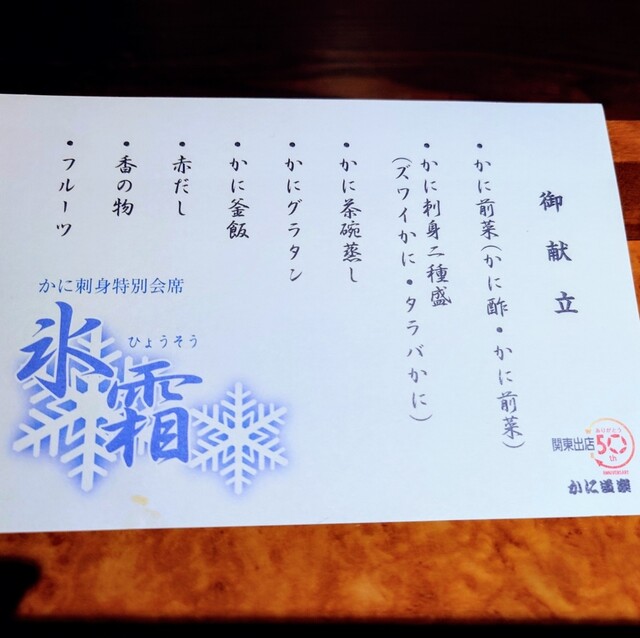 御献立
・かに前菜(かに酢・かに前菜)
・かに刺身二種盛
(ズワイかに・タラバかに)
・かに茶碗蒸し
・かにグラタン
・かに釜飯
・赤だし
・香の物
・フルーツ
かに刺身特別会席
ひょうそう
氷霜
関東出店
ありがとう
50
th
かに道楽